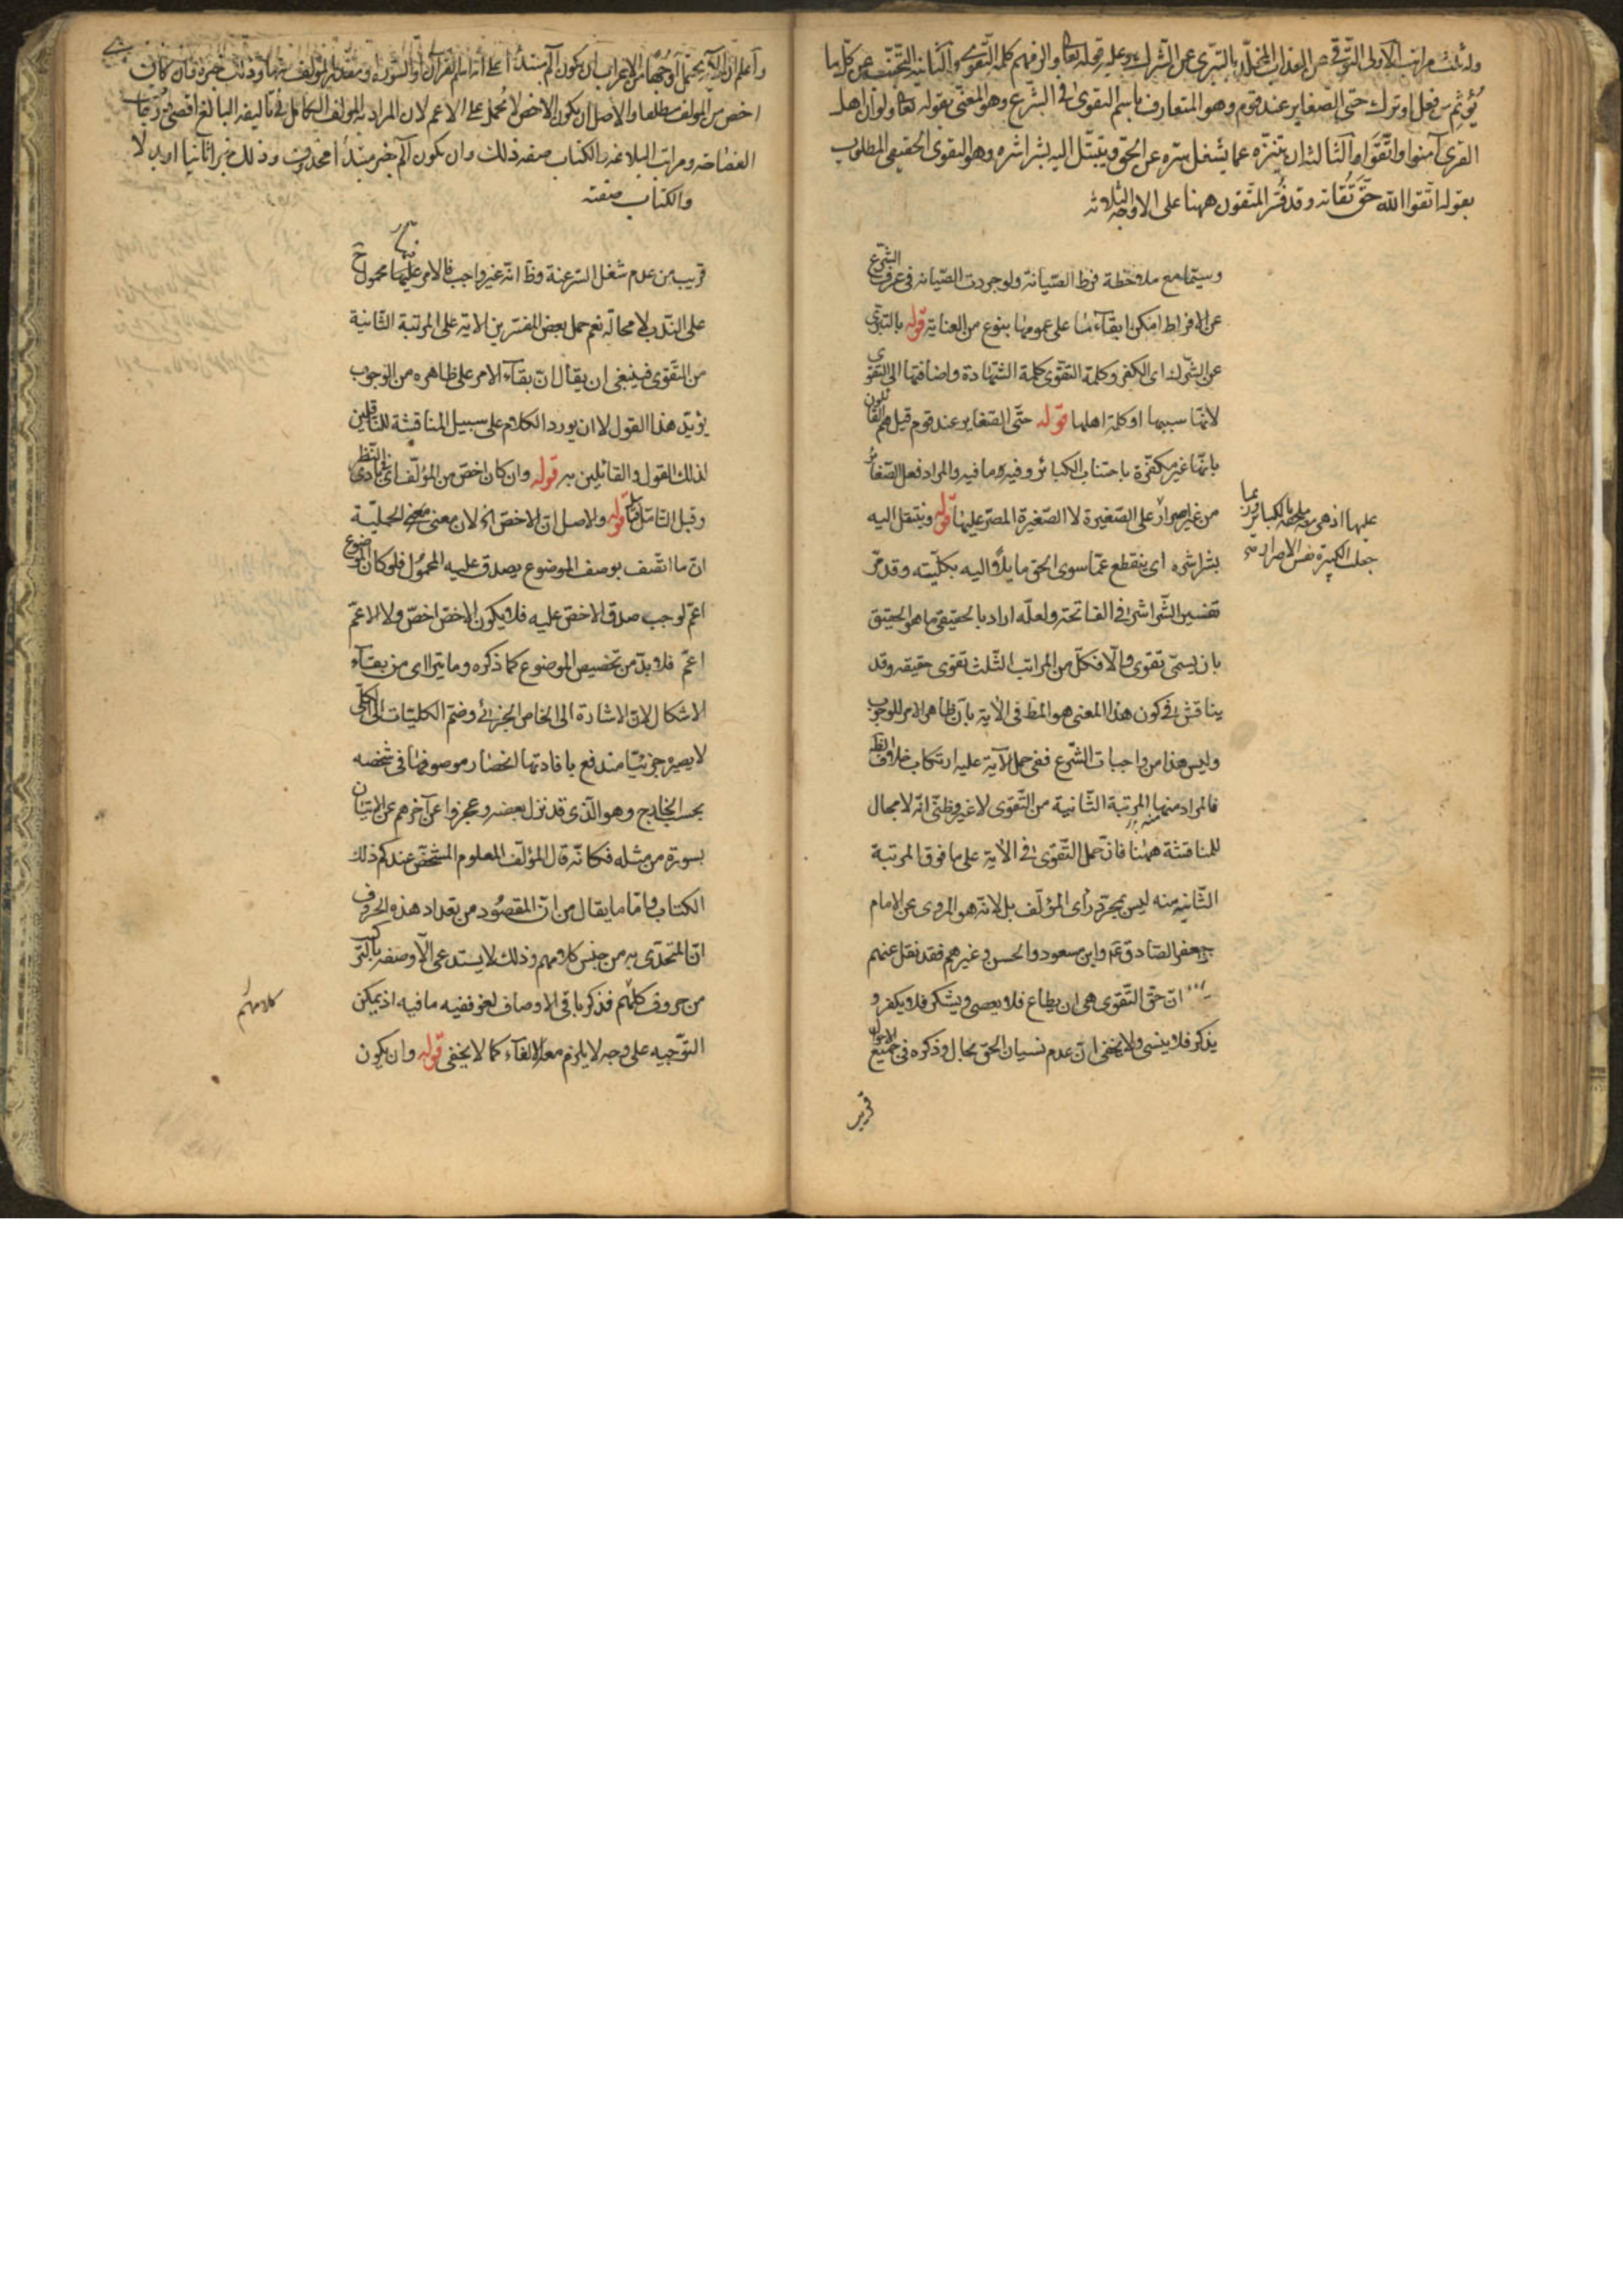 وله ثلث مراتب الاولى التوقى عن العذاب المخلد بالتبرى عن الشرك وعليه قوله تعالى والزمهم كلمة التقوى والثانية التجنب عن كل ما
يؤثم من فعل او ترك حتى الصغاير عند قوم وهو المتعارف باسم التقوى فى الشرع وهو المعنى بقوله تعالى ولو ان اهل
القرى آمنوا واتقوا والثالثة ان يتنزه عما يشغل سره عن الحق ويتبتل اليه بشراشره وهو التقوى الحقيقى المطلوب
بقوله اتقوا الله حق تقاته وقد فسر المتقون ههنا على الاوجه الثلاثة
وسيما مع ملاحظة فرط الصيانة ولو جردت الصيانة فى عرف الشرع
عن الافراط امكن ابقاءها على عمومها بنوع من العناية قوله بالتبرى
عن الشرك اى الكفر وكلمة التقوى كلمة الشهادة واضافتها الى التقوى
لانها سببها او كلمة اهلها قوله حتى الصغاير عند قوم قيل هم القائلون
بانها غير مكفرة باجتناب الكبائر وفيه ما فيه والمراد فعل الصغائر
من غير اصرار على الصغيرة لا الصغيرة المصر عليها قوله ويتبتل اليه
عليها اذ هى ملحقة بالكبائر وربما
جعلت الكبيرة نفس الاصرار
بشراشره اى ينقطع عما سوى الحق مايلا اليه بكليته وقد مر
تفسير الشراشر فى الفاتحة ولعله اراد بالحقيقى ما هو الحقيق
بان يسمى تقوى والا فكل من المراتب الثلث تقوى حقيقة وقد
يناقش فى كون هذا المعنى هو المط فى الآية بان ظاهر الامر للوجوب
وليس هذا من واجبات الشرع ففى حمل الآية عليه ارتكاب خلاف الظ
فالمراد منها المرتبة الثانية من التقوى لا غير وظنى انه لا مجال
للمناقشة ههنا فان حمل التقوى فى الآية على ما فوق المرتبة
الثانية منه ليس بمجرد رأى المؤلف بل لانه هو المروى عن الامام
جعفر الصادق ع م وابن مسعود والحسن وغيرهم فقد نقل عنهم
ان حق التقوى هى ان يطاع فلا يعصى ويشكر فلا يكفر و
يذكر فلا ينسى ولا يخفى ان عدم نسيان الحق بحال وذكره فى جميع الاحوال
قريب
واعلم ان الآية يحتمل اوجها من الاعراب ان يكون الم مبتدأ على انه اسم القرآن او السورة او مقدر بالمؤلف منها وذلك خبره وان كان
اخص من المؤلف مطلقا والاصل ان يكون الاخص لا يحمل على الاعم لان المراد به المؤلف الكامل فى تأليفه البالغ اقصى درجات
الفصاحة ومراتب البلاغة والكتاب صفة ذلك وان يكون الم خبر مبتدأ محذوف وذلك خبرا ثانيا او بدلا
والكتاب صفته
قريب من عدم شغل السر عنه وظ انه غير واجب فالامر عليهما محمول ح
على الندب لا محالة نعم حمل بعض المفسرين الاية على المرتبة الثانية
من التقوى فينبغى ان يقال ان بقاء الامر على ظاهره من الوجوب
يؤيد هذا القول لا ان يورد الكلام على سبيل المناقشة للناقلين
لذلك القول والقائلين به قوله وان كان اخص من المؤلف اى فى بادى النظر
وقبل التأمل قوله والاصل ان الاخص اه لان معنى الحملية
ان ما اتصف بوصف الموضوع يصدق عليه المحمول فلو كان الموضوع
اعم لوجب صدق الاخص عليه فلا يكون الاخص اخص ولا الاعم
اعم فلا بد من تخصيص الموضوع كما ذكره وما يترااى من بقاء
الاشكال لان الاشارة الى الخاص الجزئى وضم الكليات الى الكلى
لا يصير جزئيا مندفع بافادتها انحصار موصوفها فى شخصه
بحسب الخارج وهو الذى قد نزل بعضه وعجزوا عن آخرهم عن الاتيان
بسورة من مثله فكانه قال المؤلف المعلوم المشخص عندكم ذلك
الكتاب واما ما يقال من ان المقصود من تعداد هذه الحروف
ان المتحدى به من جنس كلامهم وذلك لا يستدعى الا وصفه بالتركيب
من حروف كلمهم فذكر باقى الاوصاف لغو ففيه ما فيه اذ يمكن
كلامهم
التوجيه على وجه لا يلزم معه الالغاء كما لا يخفى قوله وان يكون